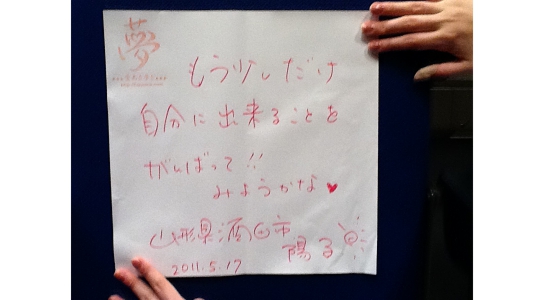 夢
もう少しだけ
自分に出来ることを
がんばって!!
みようかな♥
山形県酒田市
陽る
2011.5.17